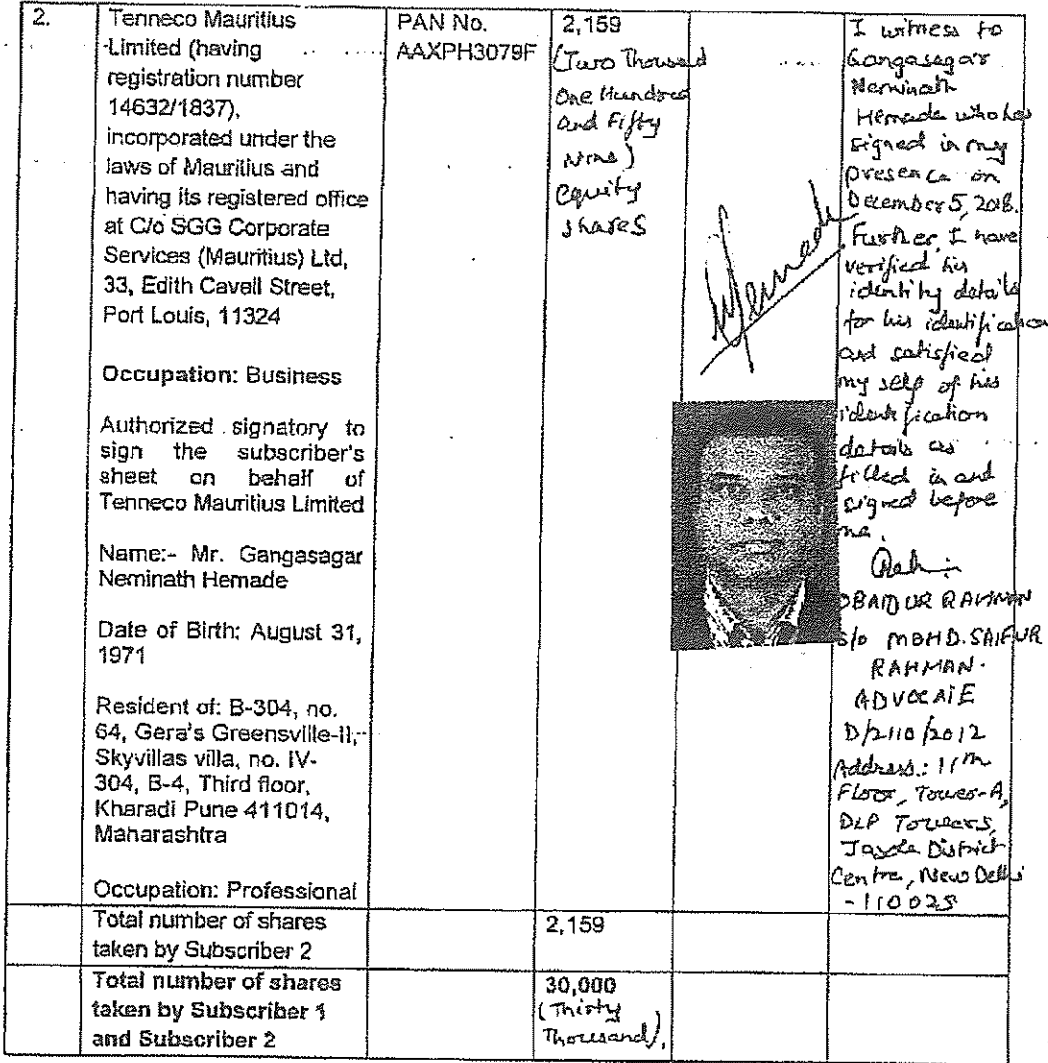 2.
Tenneco Mauritius
Limited (having
registration number
14632/1837),
incorporated under the
laws of Mauritius and
having its registered office
at C/o SGG Corporate
Services (Mauritius) Ltd,
33, Edith Cavell Street,
Port Louis, 11324
Occupation: Business
Authorized signatory to
sign the subscriber's
sheet on behalf of
Tenneco Mauritius Limited
Name:- Mr. Gangasagar
Neminath Hemade
Date of Birth: August 31,
1971
Resident of: B-304, no.
64, Gera's Greensville-II,
Skyvillas villa, no. IV-
304, B-4, Third floor,
Kharadi Pune 411014,
Maharashtra
Occupation: Professional
PAN No.
AAXPH3079F
2,159
(Two Thousand
One Hundred
and Fifty
Nine)
equity
shares
Hemade
I witness to
Gangasagar
Neminath
Hemade who has
signed in my
presence on
December 5, 2018.
Further, I have
verified his
identity details
for his identification
and satisfied
my self of his
identification
details as
filled in and
signed before
me.
OBAIDUR RAHMAN
S/o MOHD. SAIFUR
RAHMAN.
ADVOCATE
D/2110/2012
Address.: 11th
Floor, Tower-A,
DLF Towers,
Jasola District
Centre, New Delhi
-110025
Total number of shares
taken by Subscriber 2
2,159
Total number of shares
taken by Subscriber 1
and Subscriber 2
30,000
(Thirty
Thousand).